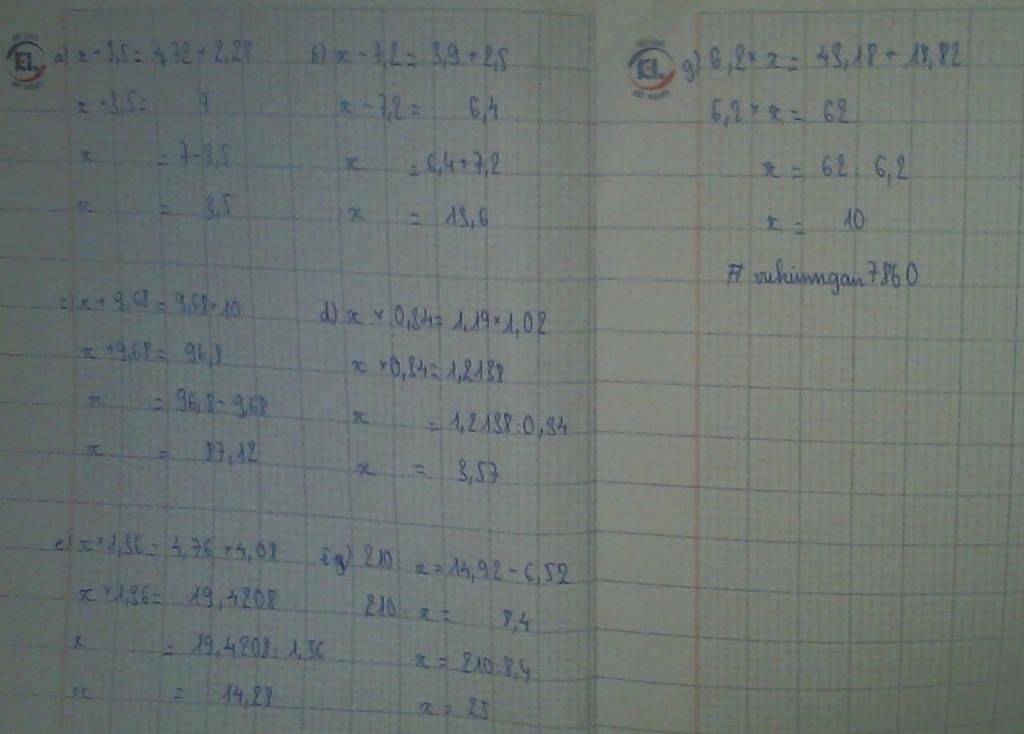 a) x + 3,5 = 4,72 + 2,28
x + 3,5 = 7
x = 7 - 3,5
x = 3,5
b) x - 7,2 = 3,9 + 2,5
x - 7,2 = 6,4
x = 6,4 + 7,2
x = 13,6
c) x + 9,68 = 9,68 × 10
x + 9,68 = 96,8
x = 96,8 - 9,68
x = 87,12
d) x × 0,34 = 1,19 × 1,02
x × 0,34 = 1,2138
x = 1,2138 : 0,34
x = 3,57
e) x × 1,36 = 4,76 × 4,08
x × 1,36 = 19,4208
x = 19,4208 : 1,36
x = 14,28
g) 210 : x = 14,92 - 6,52
210 : x = 8,4
x = 210 : 8,4
x = 25
g) 6,2 × x = 43,18 + 18,82
6,2 × x = 62
x = 62 : 6,2
x = 10